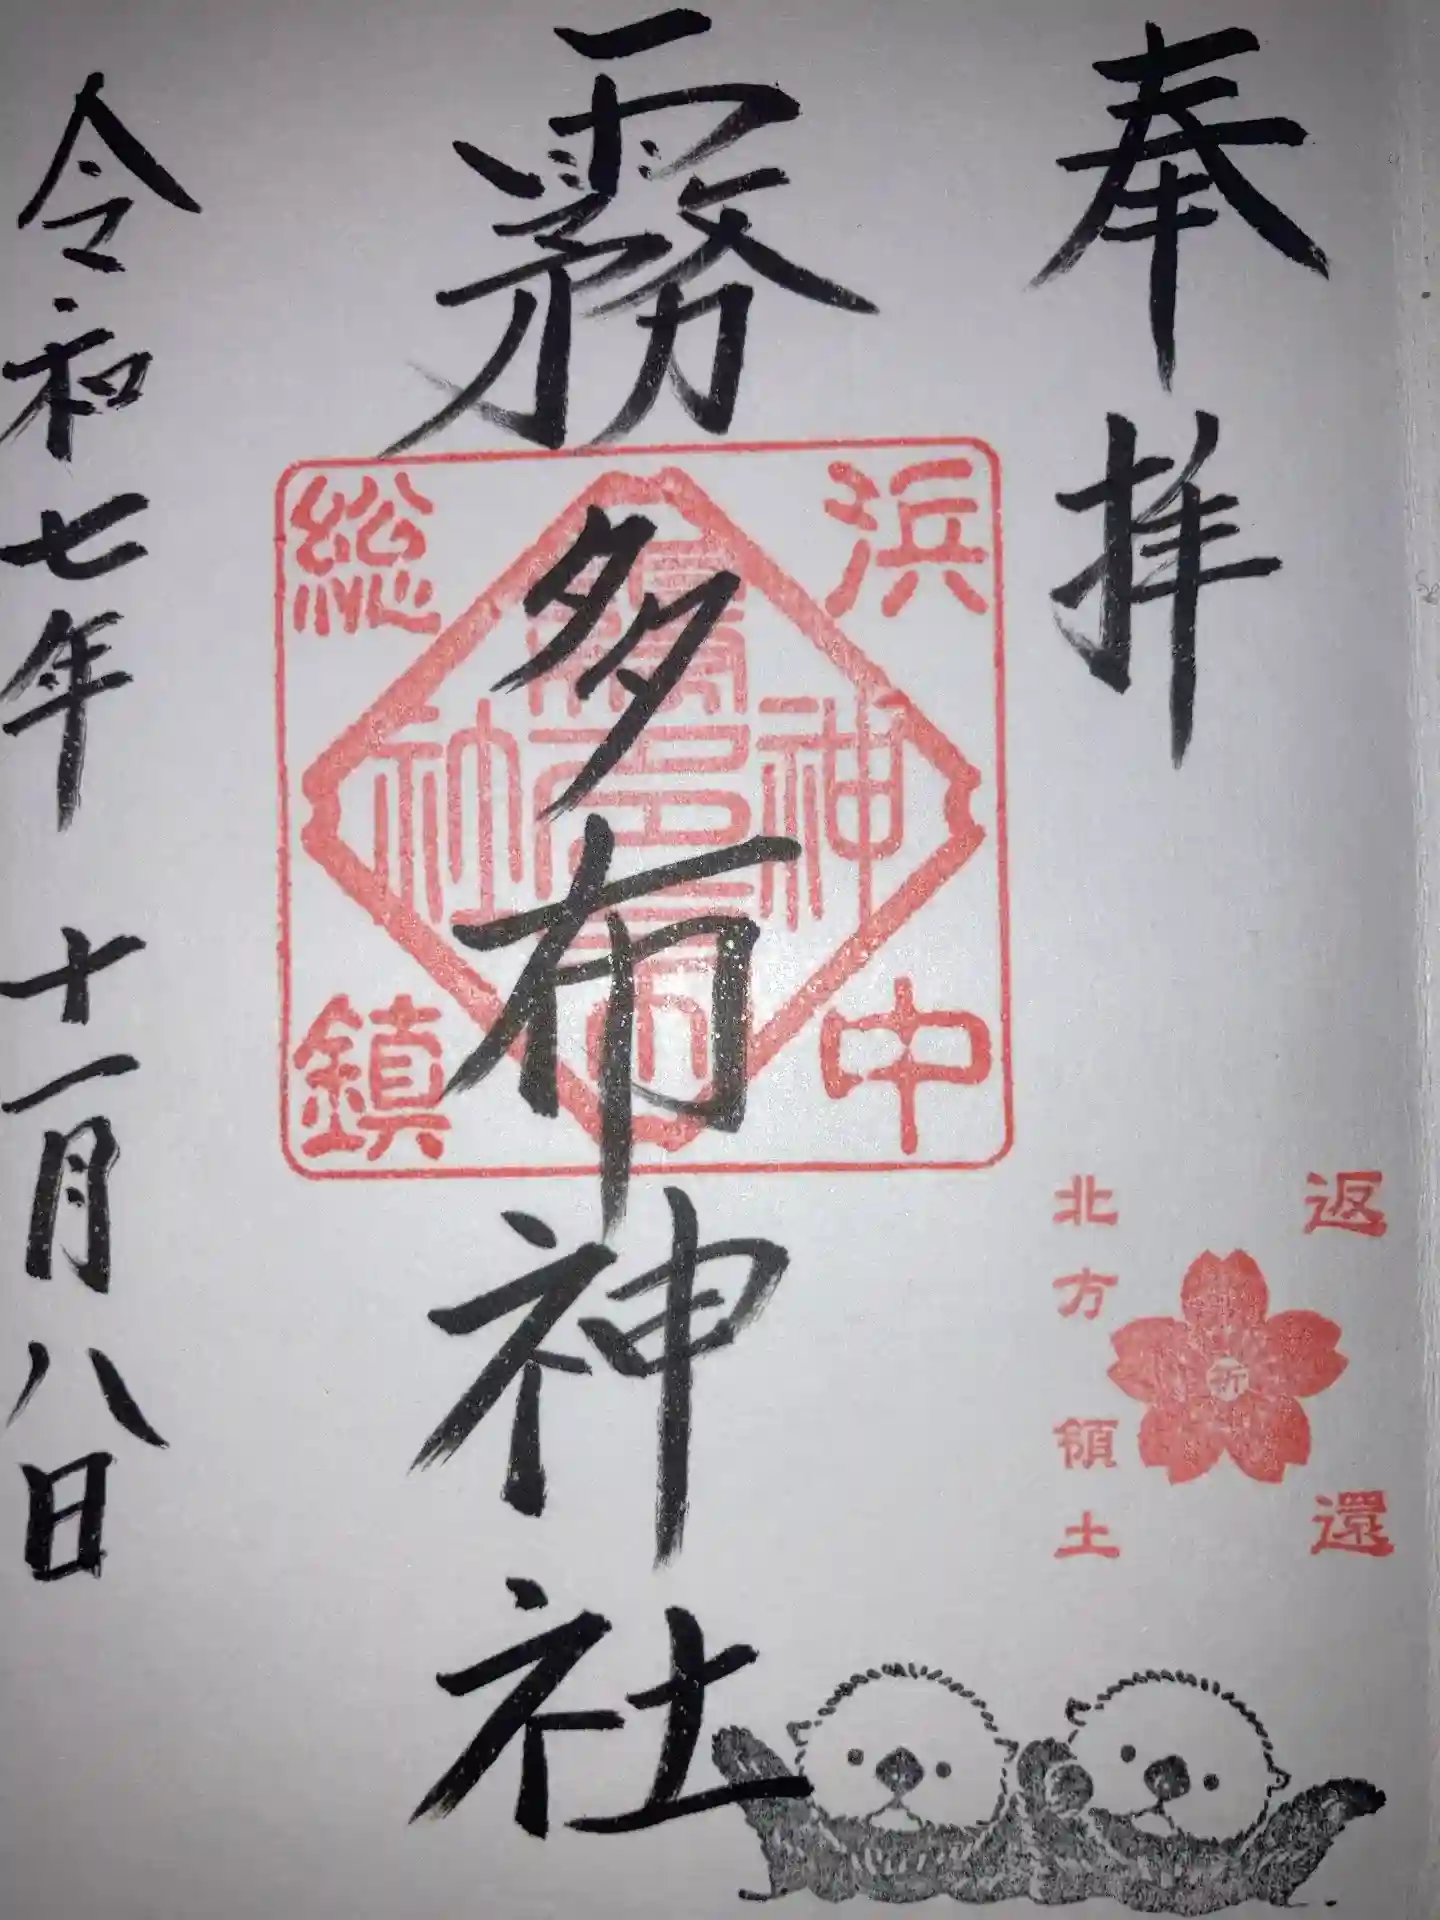 奉拝
霧多布神社
令和七年 十一月八日
浜中
総鎮
霧多布
神社
返還
祈
北方領土